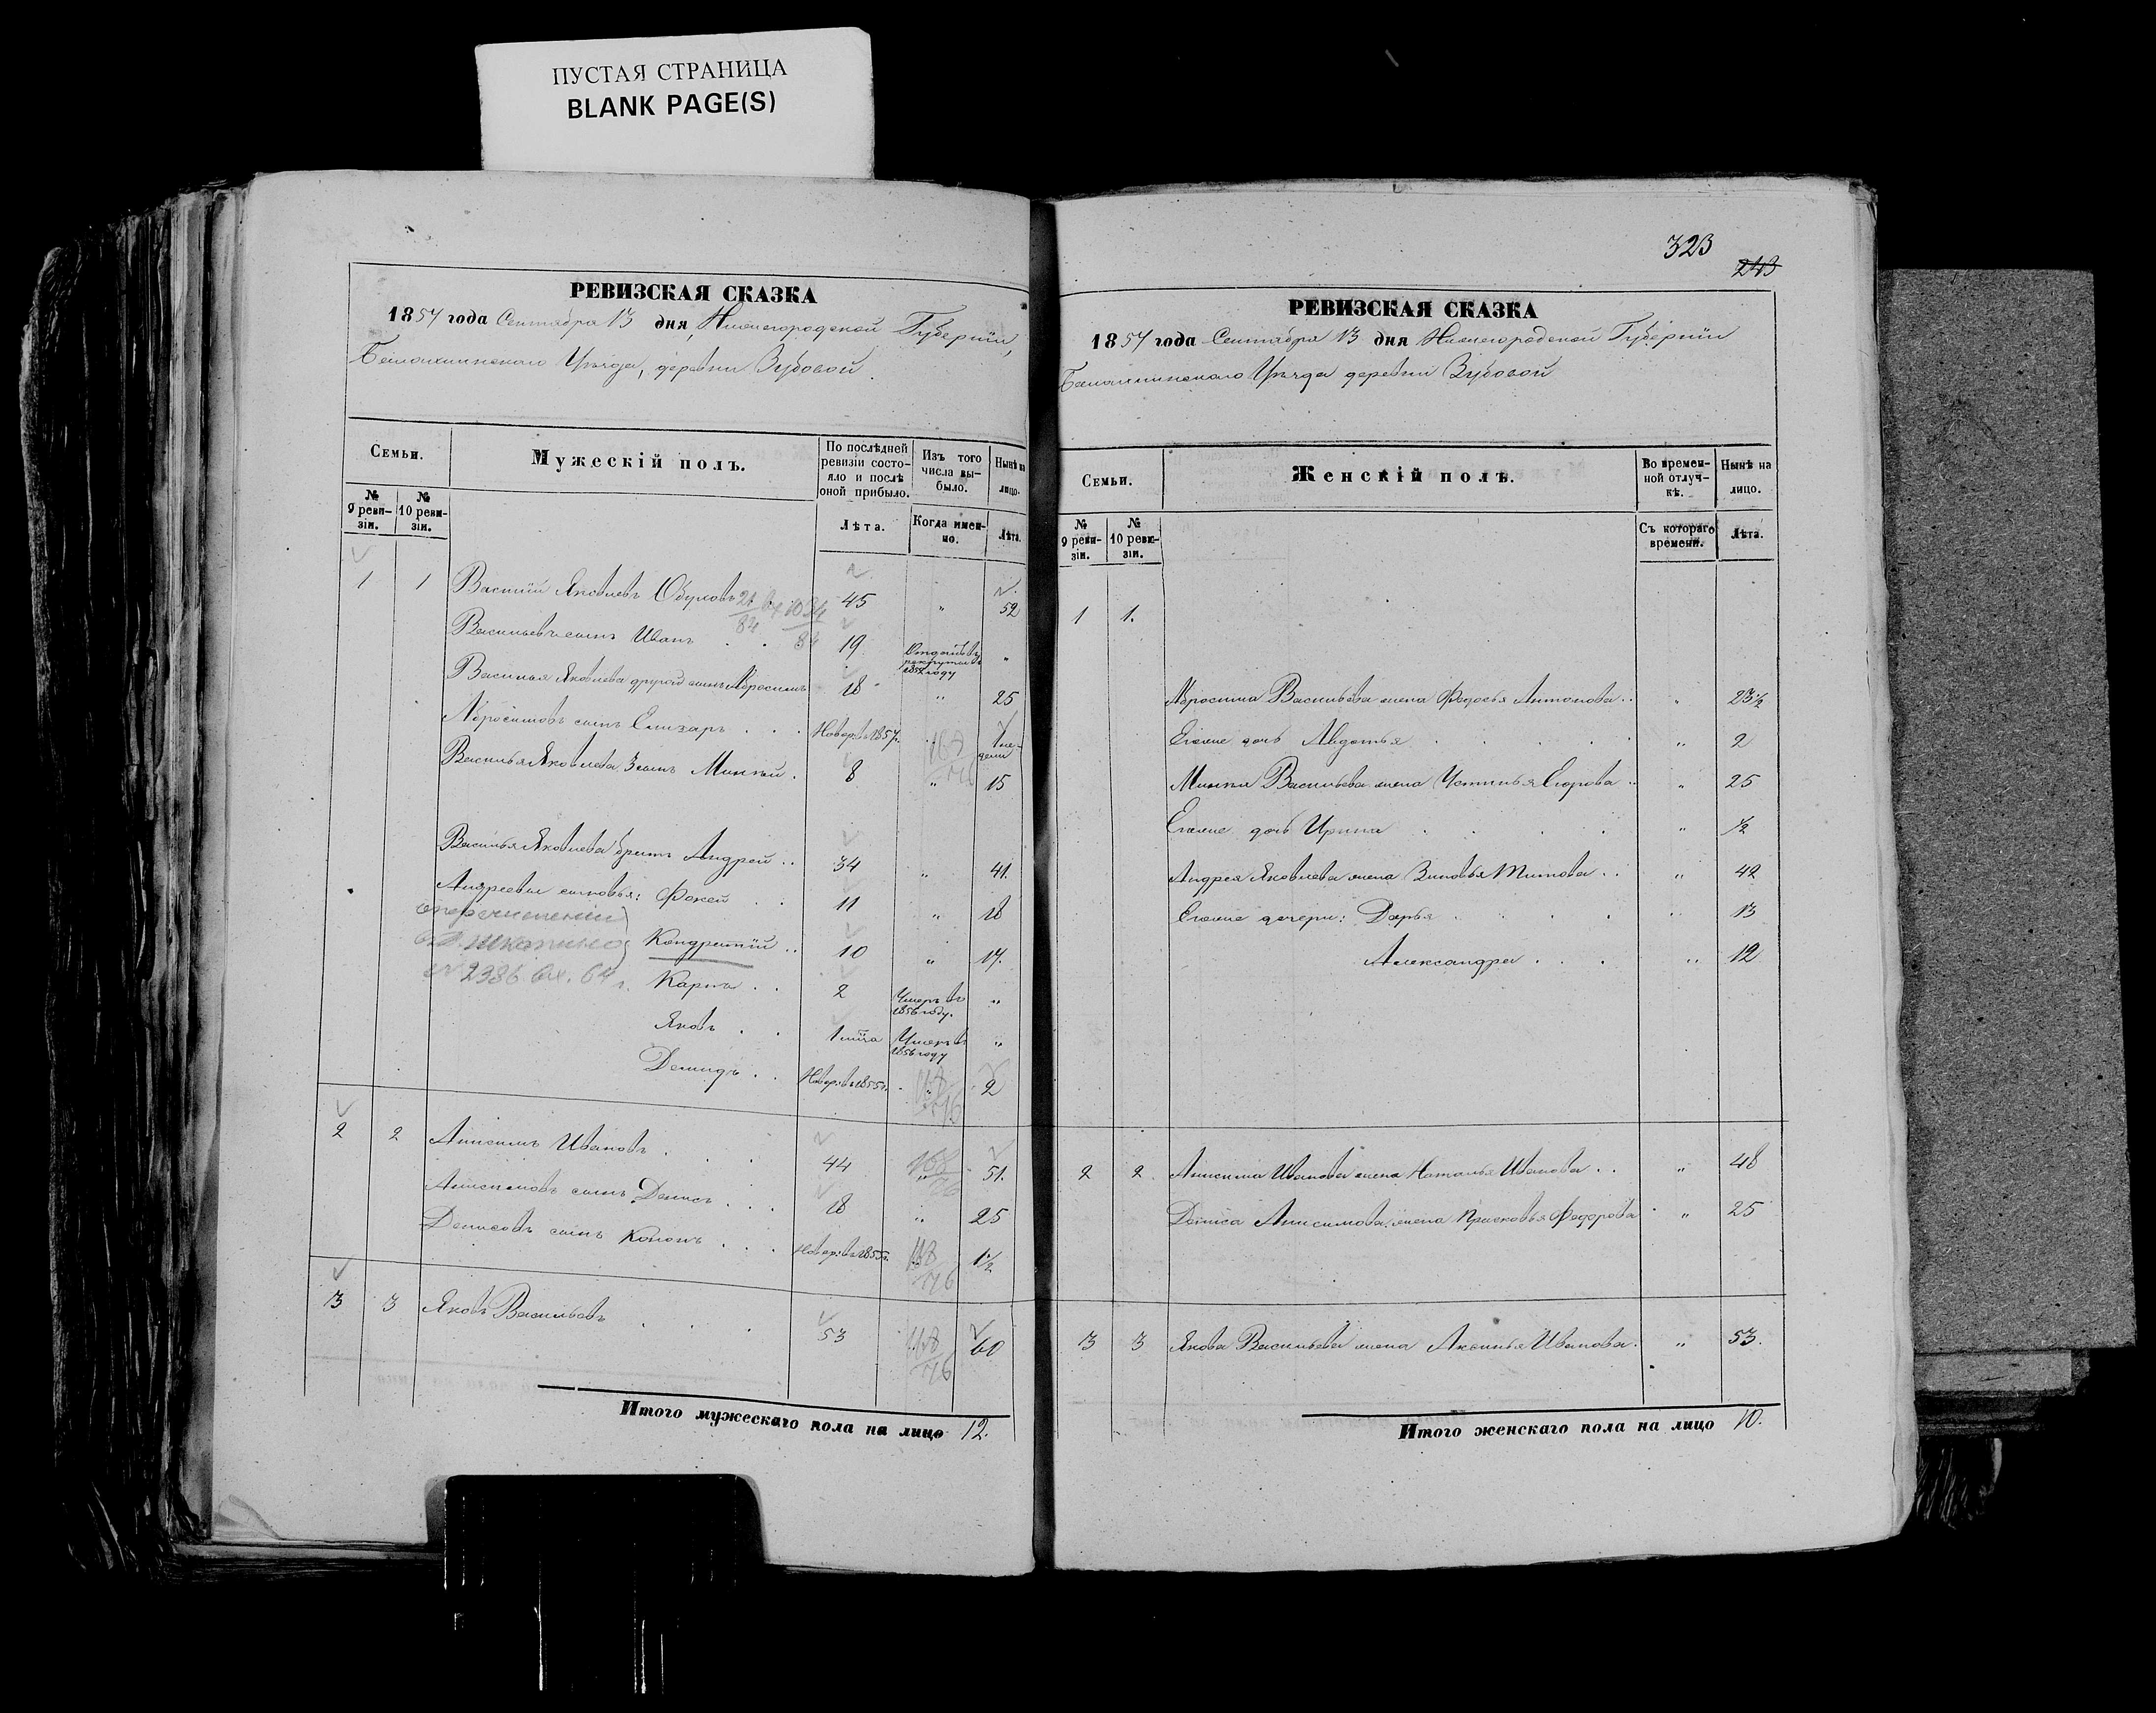 ПУСТАЯ СТРАНИЦА
BLANK PAGE(S)
РЕВИЗСКАЯ СКАЗКА
1857 года Сентября 13 дня, Нижегородской Губернии,
Балахнинскаго Уѣзда, деревни Зубовой.
Семьи.
Мужескій полъ.
По послѣдней ревизіи состояло и послѣ оной прибыло.
Изъ того числа выбыло.
Нынѣ на лицо.
№ 9 ревизіи.
№ 10 ревизіи.
Лѣта.
Когда именно.
Лѣта.
1 1 Василій Яковлевъ Обуховъ 45 " 52
Васильевъ сынъ Иванъ . . 19 Отданъ въ рекруты въ 1854 году "
Василья Яковлева другой сынъ Абросимъ 18 " 25
Абросимовъ сынъ Елизаръ . . . Новор: въ 1857 г. 1 недели
Василья Яковлева 3 сынъ Михей . 8 " 15
Василья Яковлева братъ Андрей . . 34 " 41.
Андреевы сыновья: Фокей . . 11 " 18
Кондратій . . 10 " 17.
№ 2386 вх. 64 г.
Карпъ . . 2 Умеръ въ 1856 году. "
Яковъ . . 1 м-ца Умеръ въ 1856 году "
Демидъ . . Новор: въ 1855 г. " 2
2 2 Анисимъ Ивановъ . . . 44 " 51.
Анисимовъ сынъ Денисъ . . . 18 " 25
Денисовъ сынъ Кононъ . . . Новор: въ 1855 г. " 1 1/2
3 3 Яковъ Васильевъ . . . 53 " 60
Итого мужескаго пола на лицо 12.
323
243
РЕВИЗСКАЯ СКАЗКА
1857 года Сентября 13 дня Нижегородской Губерніи
Балахнинскаго Уѣзда деревни Зубовой
Семьи.
Женскій полъ.
Во временной отлучкѣ.
Нынѣ на лицо.
№ 9 ревизіи.
№ 10 ревизіи.
Съ котораго времени.
Лѣта.
1 1.
Абросима Васильева жена Федосья Антонова . . " 23 1/2
Егоже дочь Авдотья . . . . . " 2
Михея Васильева жена Устинья Егорова . . " 25
Егоже дочь Ирина . . . . " 1/2
Андрея Яковлева жена Зиновья Титова . . " 42
Егоже дочери: Дарья . . . . " 13
Александра . . . " 12
2 2. Анисима Иванова жена Наталья Иванова . . " 48
Дениса Анисимова жена Прасковья Федорова . " 25
3 3 Якова Васильева жена Аксинья Иванова . " 53.
Итого женскаго пола на лицо 10.